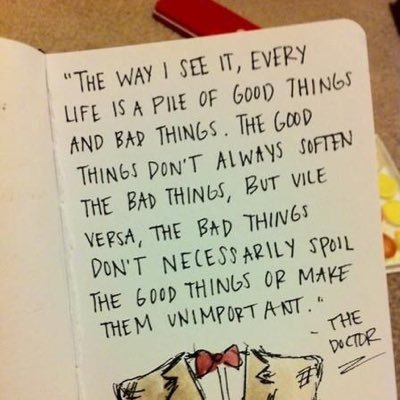 "THE WAY I SEE IT, EVERY
LIFE IS A PILE OF GOOD THINGS
AND BAD THINGS. THE GOOD
THINGS DON'T ALWAYS SOFTEN
THE BAD THINGS, BUT VILE
VERSA, THE BAD THINGS
DON'T NECESSARILY SPOIL
THE GOOD THINGS OR MAKE
THEM UNIMPORTANT."
- THE
DOCTOR